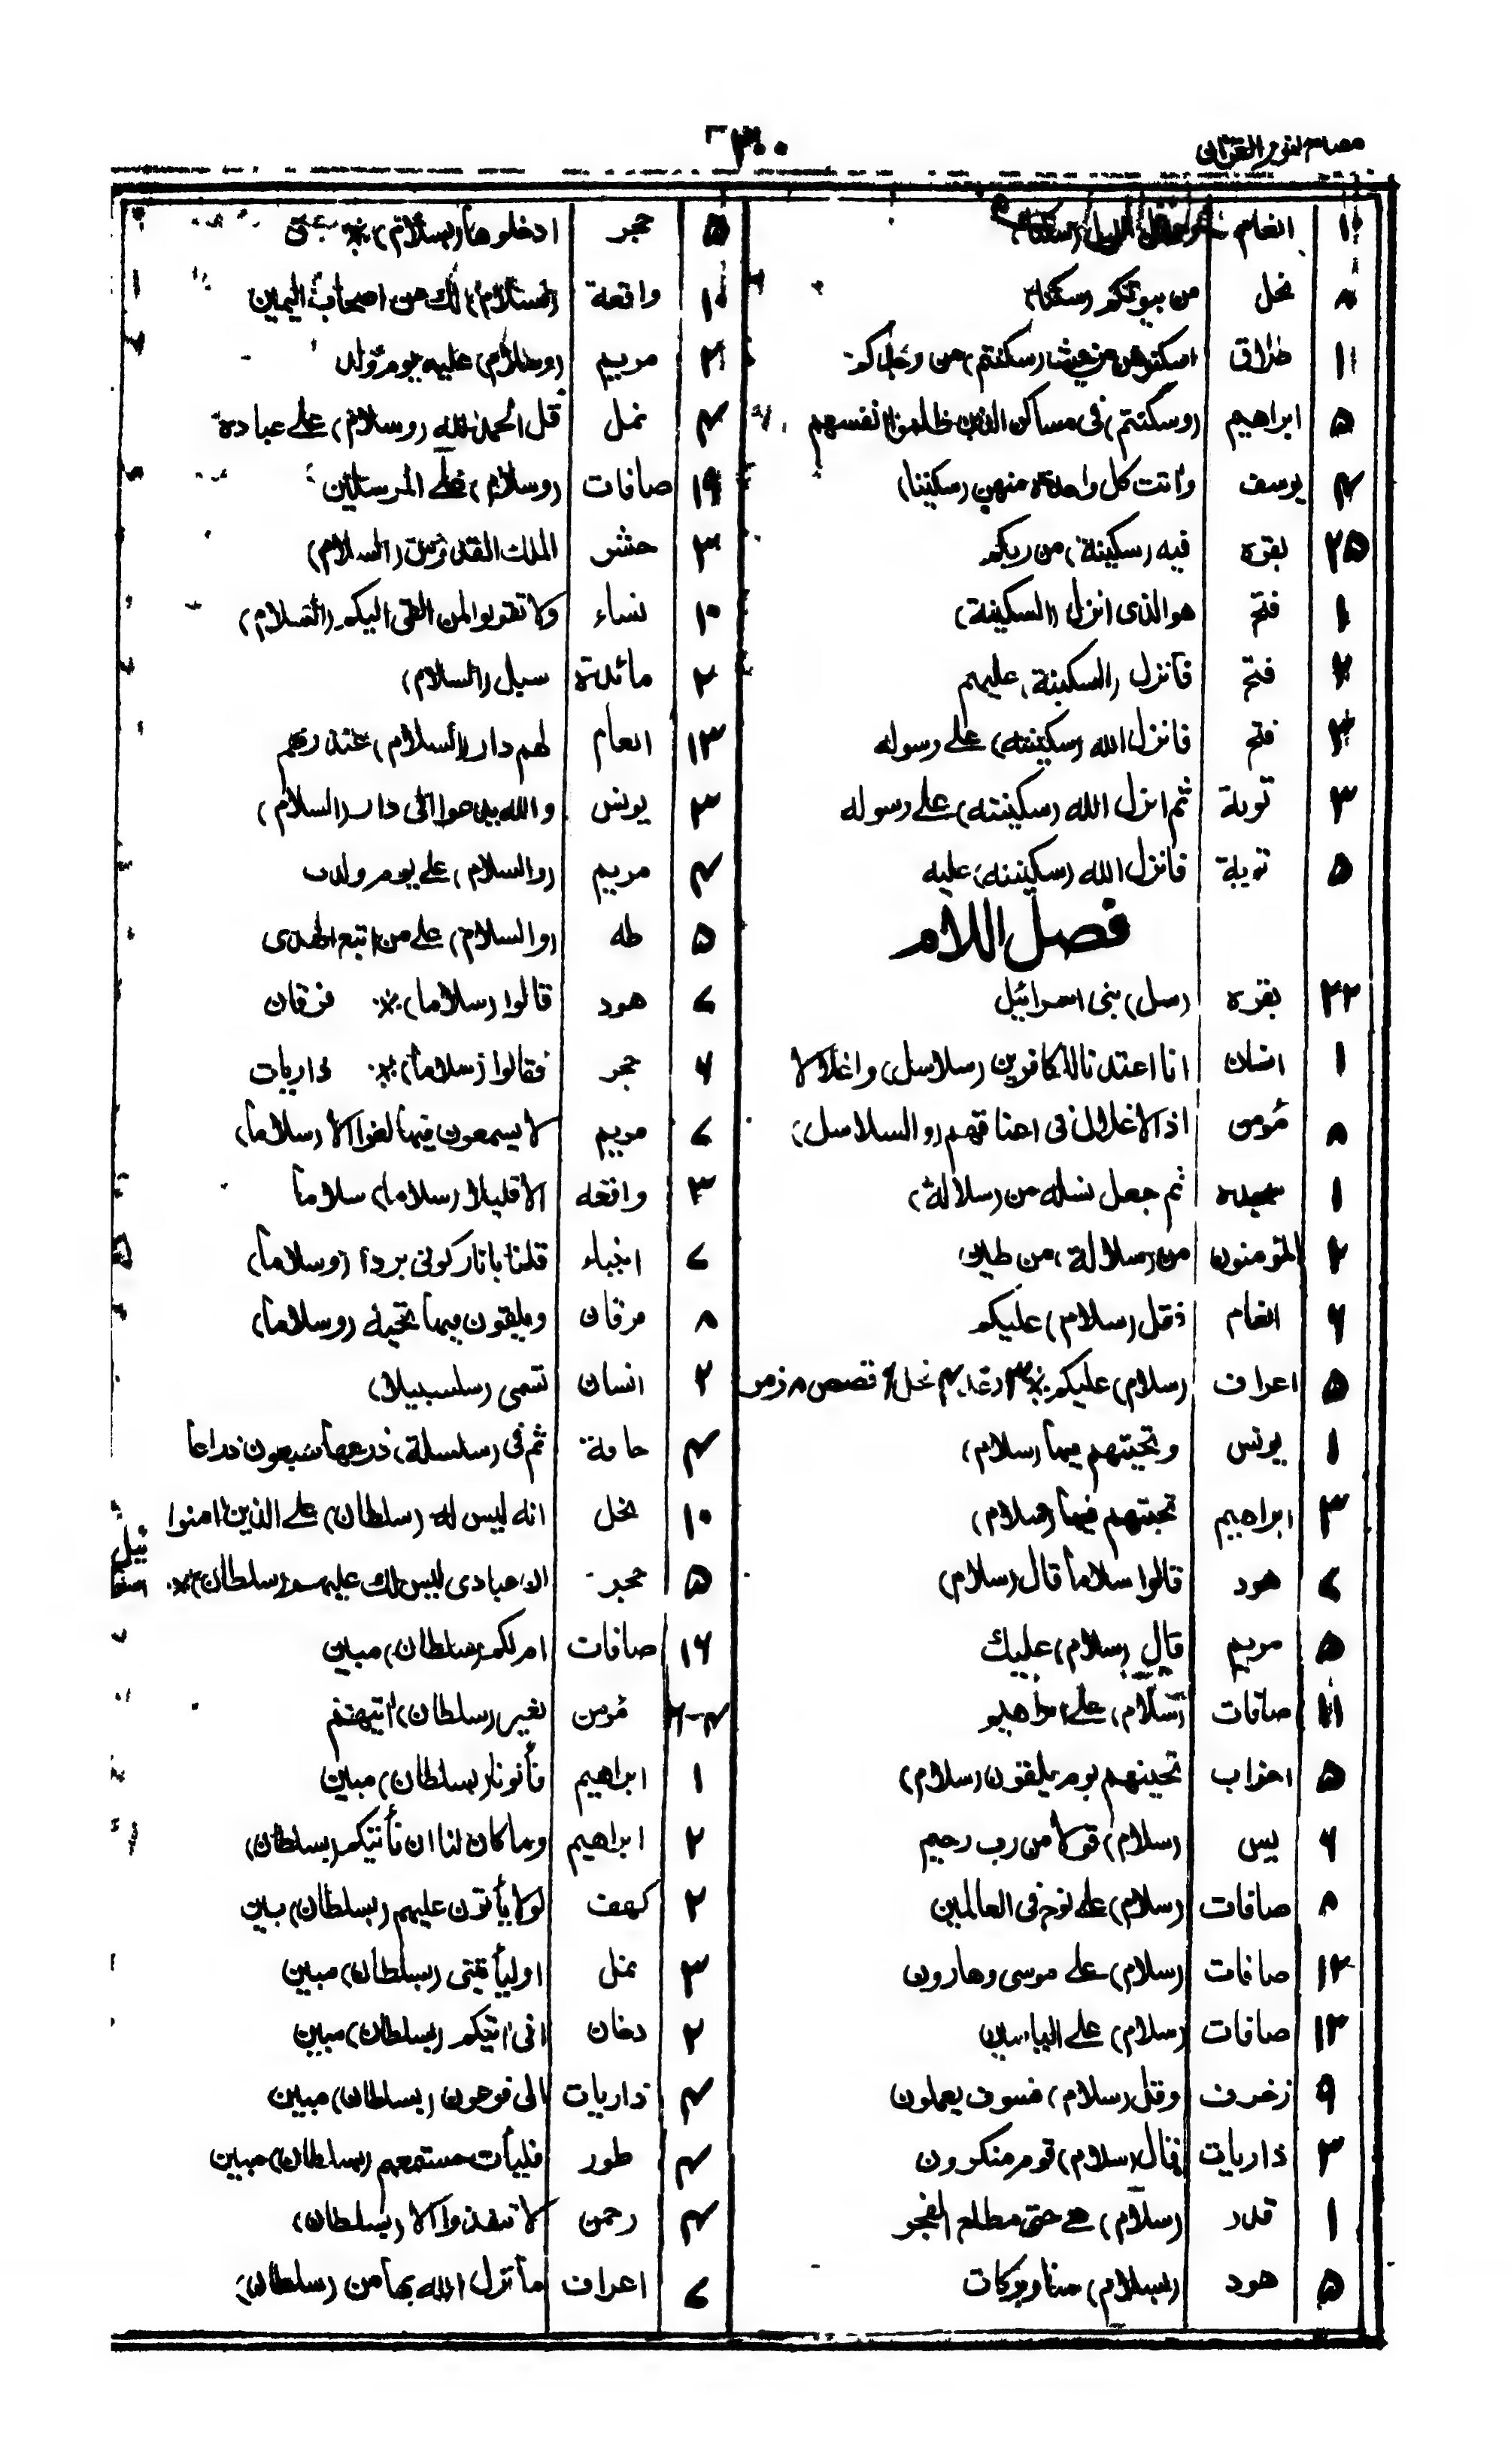 ٣٠٠
انعام (سكنا)
٨ نحل من بيوتكم (سكنا)
طلاق اسكنوهن من حيث (سكنتم) من وجدكم
٥ ابراهيم (وسكنتم) فى مساكن الذين ظلموا انفسهم
٤ يوسف واتت كل واحدة منهن (سكينا)
٢٥ بقره فيه (سكينة) من ربكم
١ فتح هو الذى انزل (السكينة)
٢ فتح فانزل (السكينة) عليهم
٣ فتح فانزل الله (سكينته) على رسوله
٣ توبة ثم انزل الله (سكينته) على رسوله
٥ توبة فانزل الله (سكينته) عليه
فصل اللام
٢٢ بقره (سل) بنى اسرائيل
١ انسان انا اعتدنا للكافرين (سلاسل) واغلالا
٨ مؤمن اذ الاغلال فى اعناقهم (والسلاسل)
١ سجده ثم جعل نسله من (سلالة)
٢ المؤمنون من (سلالة) من طين
٦ انعام فقل (سلام) عليكم
٥ اعراف (سلام) عليكم * ٣ رعد ٤ نحل ٦ قصص ٨ زمر
١ يونس وتحيتهم فيها (سلام)
٣ ابراهيم تحيتهم فيها (سلام)
٧ هود قالوا سلاما قال (سلام)
٥ مريم قال (سلام) عليك
صافات (سلام) على ابراهيم
٥ احزاب تحيتهم يوم يلقون (سلام)
٦ يس (سلام) قولا من رب رحيم
٨ صافات (سلام) على نوح فى العالمين
١٢ صافات (سلام) على موسى وهارون
١٣ صافات (سلام) على الياسين
٩ زخرف وقل (سلام) فسوف يعملون
٣ ذاريات فقال (سلام) قوم منكرون
١ قدر (سلام) هى حتى مطلع الفجر
٥ هود (بسلام) منا وبركات
٥ حجر ادخلوها (بسلام) *
١٠ واقعة (فسلام) لك من اصحاب اليمين
٢ مريم (وسلام) عليه يوم ولد
٤ نمل قل الحمد لله (وسلام) على عباده
١٩ صافات (وسلام) على المرسلين
٣ حشر الملك القدوس (السلام)
١٠ نساء ولا تقولوا لمن القى اليكم (السلام)
٢ مائدة سبل (السلام)
١٣ انعام لهم دار (السلام) عند ربهم
٣ يونس والله يدعوا الى دار (السلام)
٤ مريم (والسلام) على يوم ولدت
٥ طه (والسلام) على من اتبع الهدى
٧ هود قالوا (سلاما) * فرقان
٦ حجر فقالوا (سلاما) * ذاريات
٧ مريم لا يسمعون فيها لغوا الا (سلاما)
٣ واقعه الا قليلا (سلاما) سلاما
٧ انبياء قلنا يا نار كونى بردا (وسلاما)
٨ فرقان ويلقون فيها تحية (وسلاما)
٢ انسان تسمى (سلسبيلا)
٤ حاقة ثم فى (سلسلة) ذرعها سبعون ذراعا
١٠ نحل انه ليس له (سلطان) على الذين امنوا
٥ حجر ان عبادى ليس لك عليهم (سلطان) *
١٦ صافات ام لكم (سلطان) مبين
٤-٦ مؤمن بغير (سلطان) اتيهم
١ ابراهيم فأتونا (بسلطان) مبين
٢ ابراهيم وما كان لنا ان نأتيكم (بسلطان)
٢ كهف لولا يأتون عليهم (بسلطان) بين
٣ نمل او ليأتينى (بسلطان) مبين
٢ دخان انى اتيكم (بسلطان) مبين
٤ ذاريات الى فرعون (بسلطان) مبين
٤ طور فليأت مستمعهم (بسلطان) مبين
٤ رحمن لا تنفذوا الا (بسلطان)
٧ اعراف ما نزل الله بها من (سلطان)